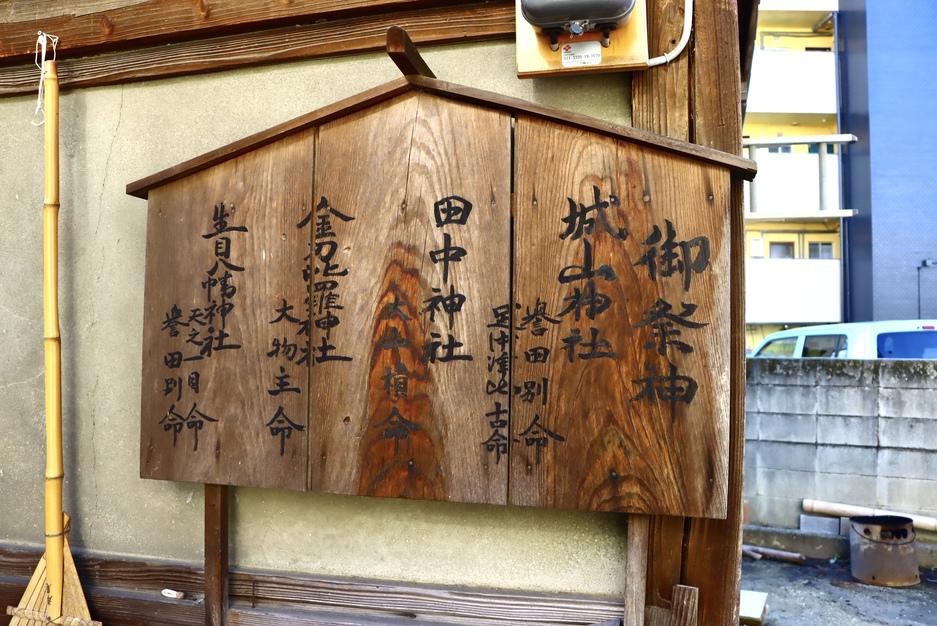 御祭神
城山神社
譽田別命
足仲津比古命
田中神社
大中槓命
金刀毗羅神社
大物主命
生目八幡神社
天之一目命
譽田別命